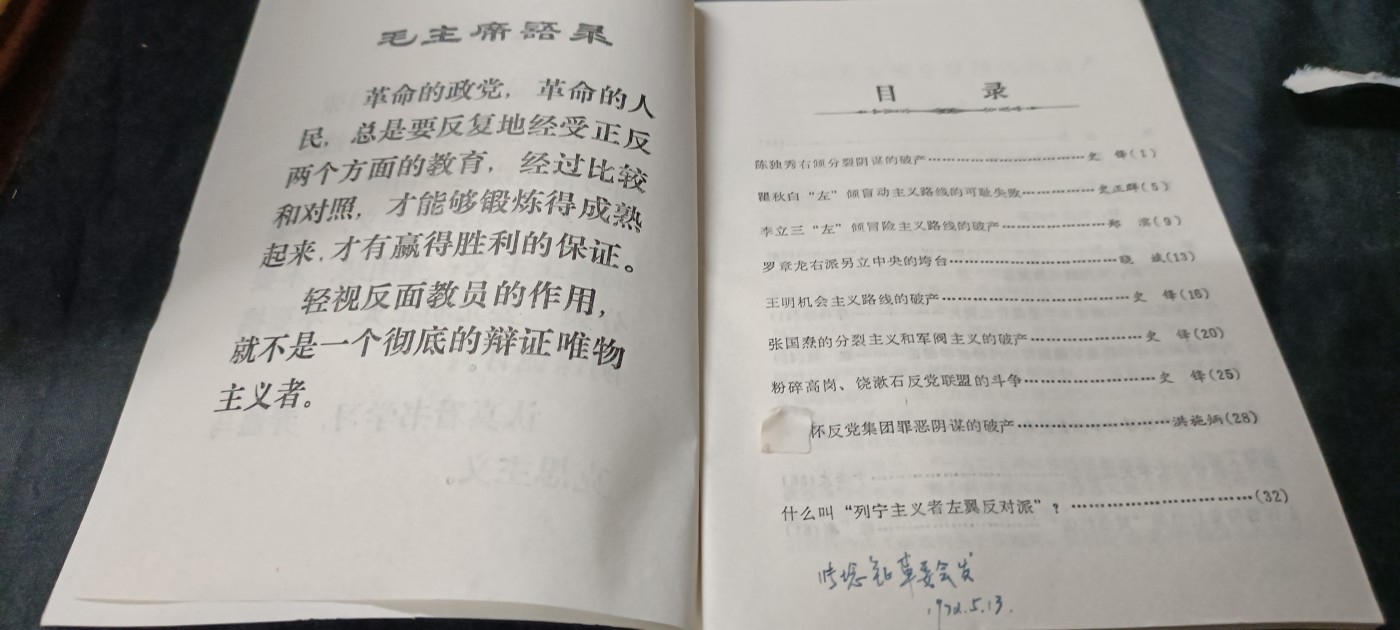 毛主席語录
革命的政党，革命的人
民，总是要反复地经受正反
两个方面的教育，经过比较
和对照，才能够锻炼得成熟
起来，才有赢得胜利的保证。
轻视反面教员的作用，
就不是一个彻底的辩证唯物
主义者。
目 录
陈独秀右倾分裂阴谋的破产……………………………史 锋(1)
瞿秋白“左”倾盲动主义路线的可耻失败……………史正群(5)
李立三“左”倾冒险主义路线的破产…………………郑 (9)
罗章龙右派另立中央的垮台……………………………晓 (13)
王明机会主义路线的破产………………………………史 锋(16)
张国焘的分裂主义和军阀主义的破产…………………史 锋(20)
粉碎高岗、饶漱石反党联盟的斗争……………………史 锋(25)
怀反党集团罪恶阴谋的破产…………………………洪施炳(28)
什么叫“列宁主义者左翼反对派”？…………………………(32)
革委会发
1972.5.13.